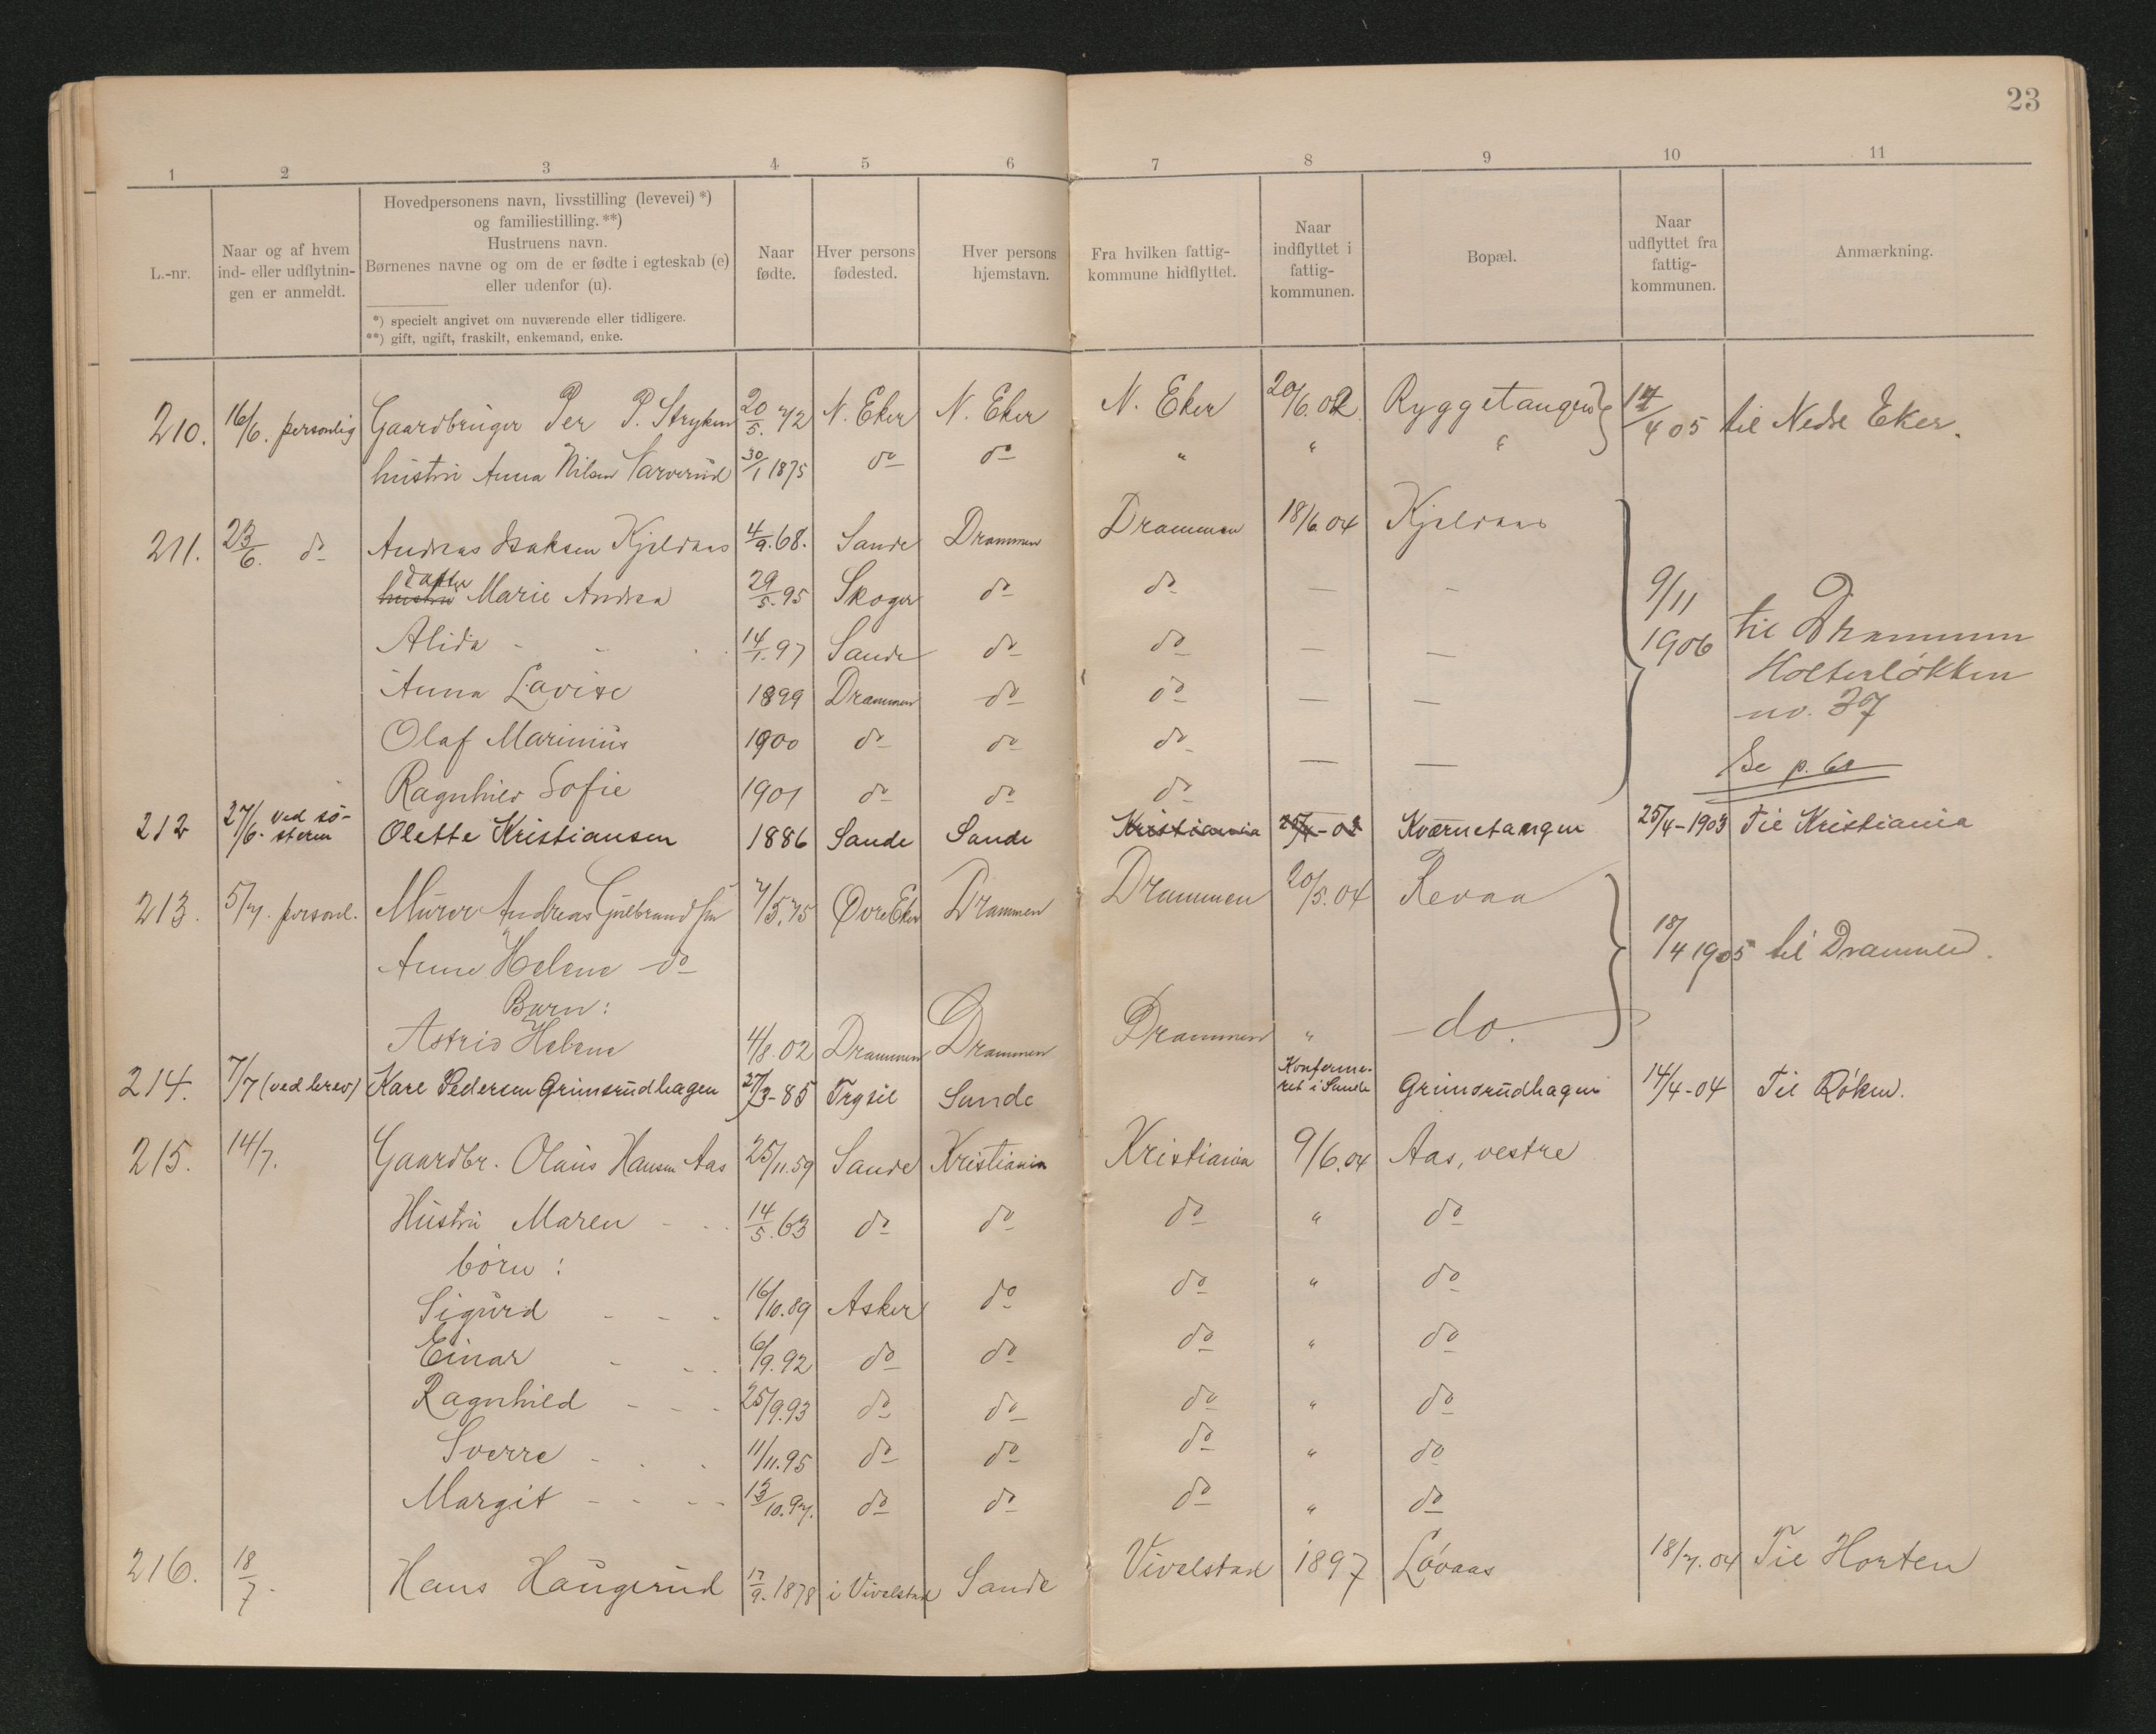 23
1 2 3 4 5 6 7 8 9 10 11
L.-nr.
Naar og af hvem
ind- eller udflytnin-
gen er anmeldt.
Hovedpersonens navn, livsstilling (levevei) *)
og familiestilling. **)
Hustruens navn.
Børnenes navne og om de er fødte i egteskab (e)
eller udenfor (u).
*) specielt angivet om nuværende eller tidligere.
**) gift, ugift, fraskilt, enkemand, enke.
Naar
fødte.
Hver persons
fødested.
Hver persons
hjemstavn.
Fra hvilken fattig-
kommune hidflyttet.
Naar
indflyttet i
fattig-
kommunen.
Bopæl.
Naar
udflyttet fra
fattig-
kommunen.
Anmærkning.
210. 16/6. personlig Gaardbruger Per P. Stryken 20/5. 72 N. Eker N. Eker N. Eker 20/6.02 Ryggetangen 17/4 05 til Nedre Eker.
hustru Anna Nilsen Narverud 30/1 1875 do do " " "
211. 23/6. do Andreas Isaksen Kjeldaas 4/9.68. Sande Drammen Drammen 18/6.04 Kjeldaas
hustru datter Marie Andrea 29/5.95 Skoger do do — - 9/11
Alida - - - 14/1.97 Sande do do — — 1906 til Drammen
Holterløkken
Anna Lovise 1899 Drammen do do — — no. 37
Olaf Marinius 1900 do do do — — Se p. 60
Ragnhild Sofie 1901 do do do
212 27/6. ved sø-
steren Olette Kristiansen 1886 Sande Sande Kristiania 25/4-03 Kværnetangen 25/4-1903 Til Kristiania
213. 5/7. personl. Murer Andreas Gulbrandsen 7/5.75 Øvre Eker Drammen Drammen 20/5.04 Revaa
Anne Helene do 18/4 1905 til Drammen.
Barn:
Astrid Helene 4/8.02 Drammen Drammen Drammen " do.
214. 7/7 (ved brev) Kare Pedersen Grimsrudhagen 27/3-85 Trysil Sande Konfirme-
ret i Sande Grimsrudhagen 14/4-04 Til Røken.
215. 14/7. Gaardbr. Olaus Hansen Aas 25/11.59 Sande Kristiania Kristiania 9/6.04 Aas, vestre
Hustru Maren - - - 14/5.63 do do do " do
børn:
Sigurd - - - 16/10.89 Asker do do " do
Einar - - - 6/9.92 do do do " do
Ragnhild - - - 25/9.93 do do do " do
Sverre - - - 11/11.95 do do do " do
Margit - - - - 13/10.97. do do do " do
216. 18/7. Hans Haugerud 17/9.1878 i Vivelstad Sande Vivelstad 1897 Løvaas 18/7.04 Til Horten